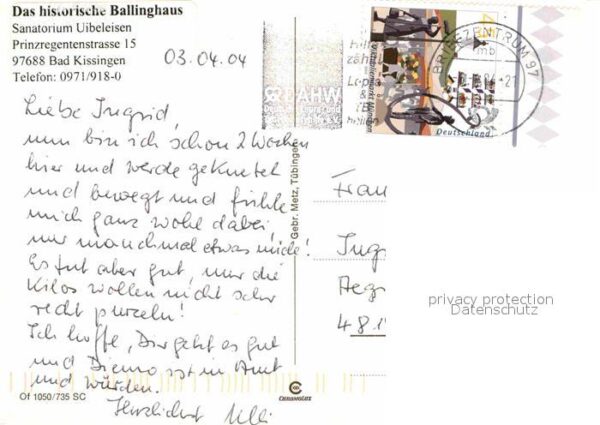 Das historische Ballinghaus
Sanatorium Uibeleisen
Prinzregentenstrasse 15
97688 Bad Kissingen
Telefon: 0971/918-0
03.04.04
BRIEFZENTRUM 97
DAHW
Deutschland
Liebe Ingrid,
nun bin ich schon 2 Wochen
hier und werde geknetet
und bewegt und fühle
mich ganz wohl dabei,
nur manchmal etwas müde!
Es tut aber gut, nur die
Kilos wollen nicht sehr
recht purzeln!
Ich hoffe, Dir geht es gut
und Diemo ist in Amt
und würden.
Herzlichst Ulli
Gebr. Metz, Tübingen
Frau
Ingr
Aegi
48.1
privacy protection
Datenschutz
Of 1050/735 SC
CHROMOLUX